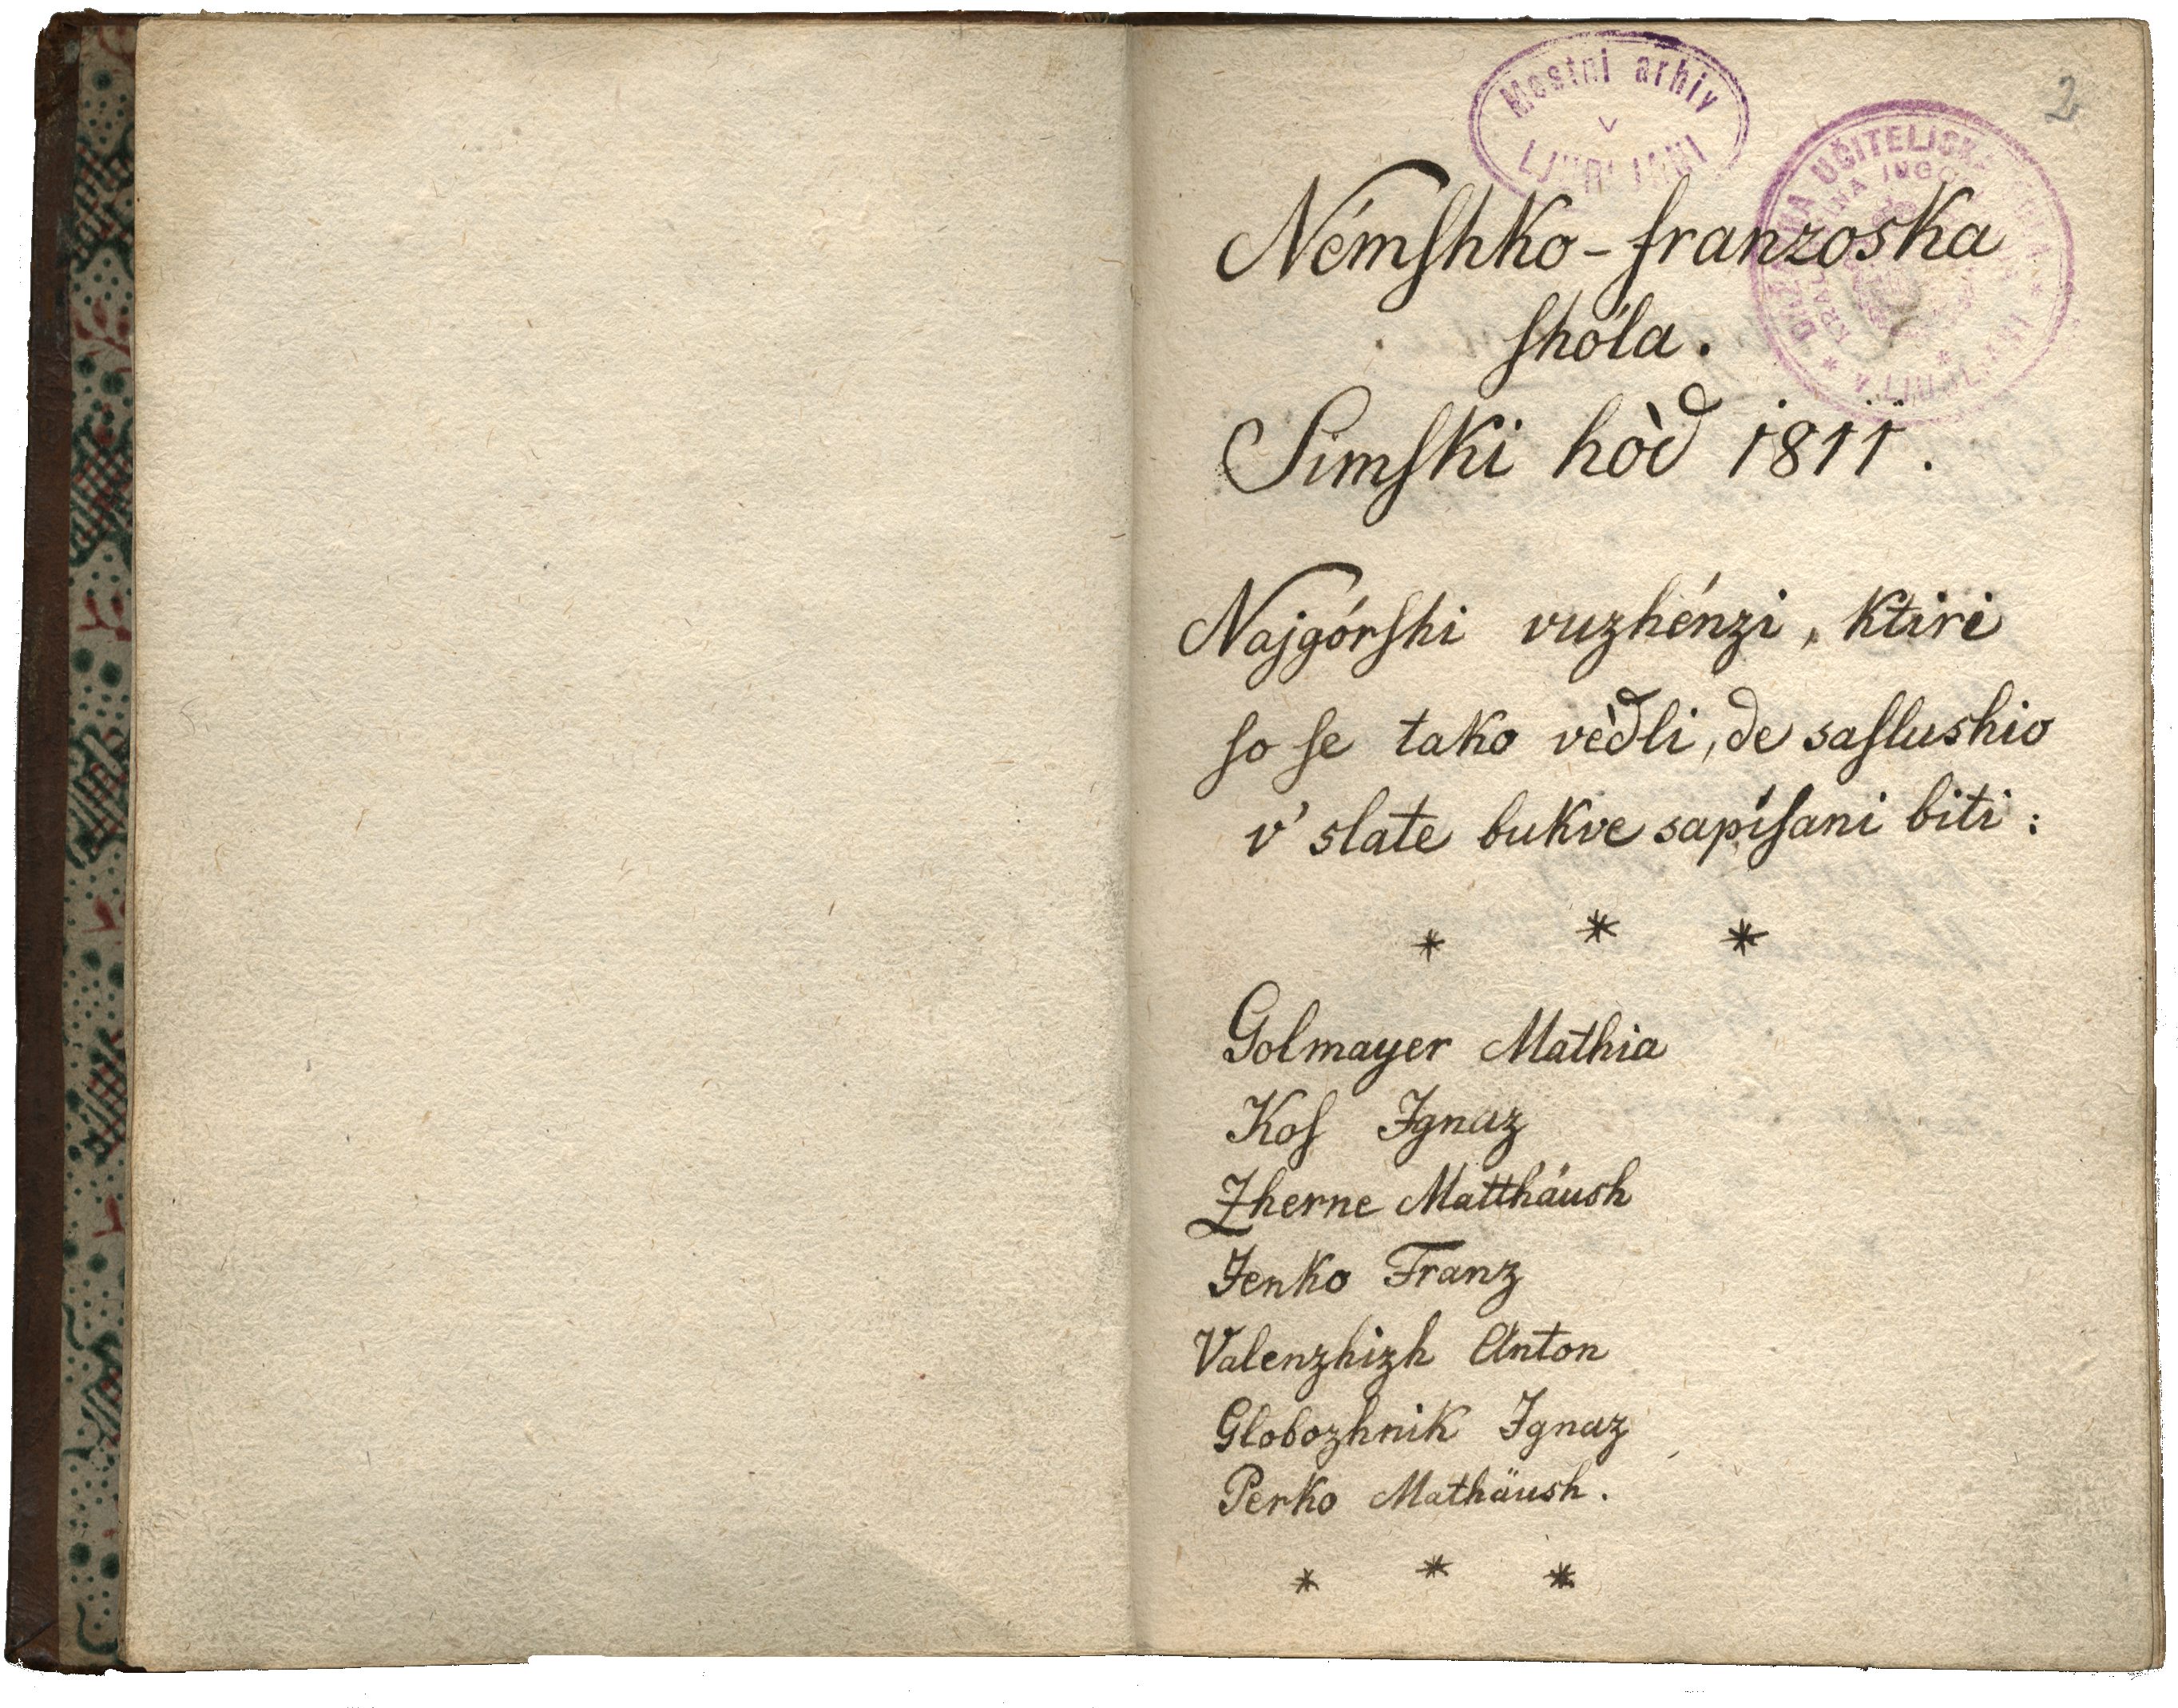 Mestni arhiv
v
LJUBLJANI
2
Némſhko-franzoska
ſhóla.
Simſki hòd 1811.
Najgórſhi vuzhénzi, ktiri
ſo ſe tako vèdli, de saſlushio
v' slate bukve sapíſani biti:
* * *
Golmayer Mathia
Koſ Ignaz
Zherne Matthäush
Jenko Franz
Valenzhizh Anton
Globozhnik Ignaz
Perko Mathäush.
* * *